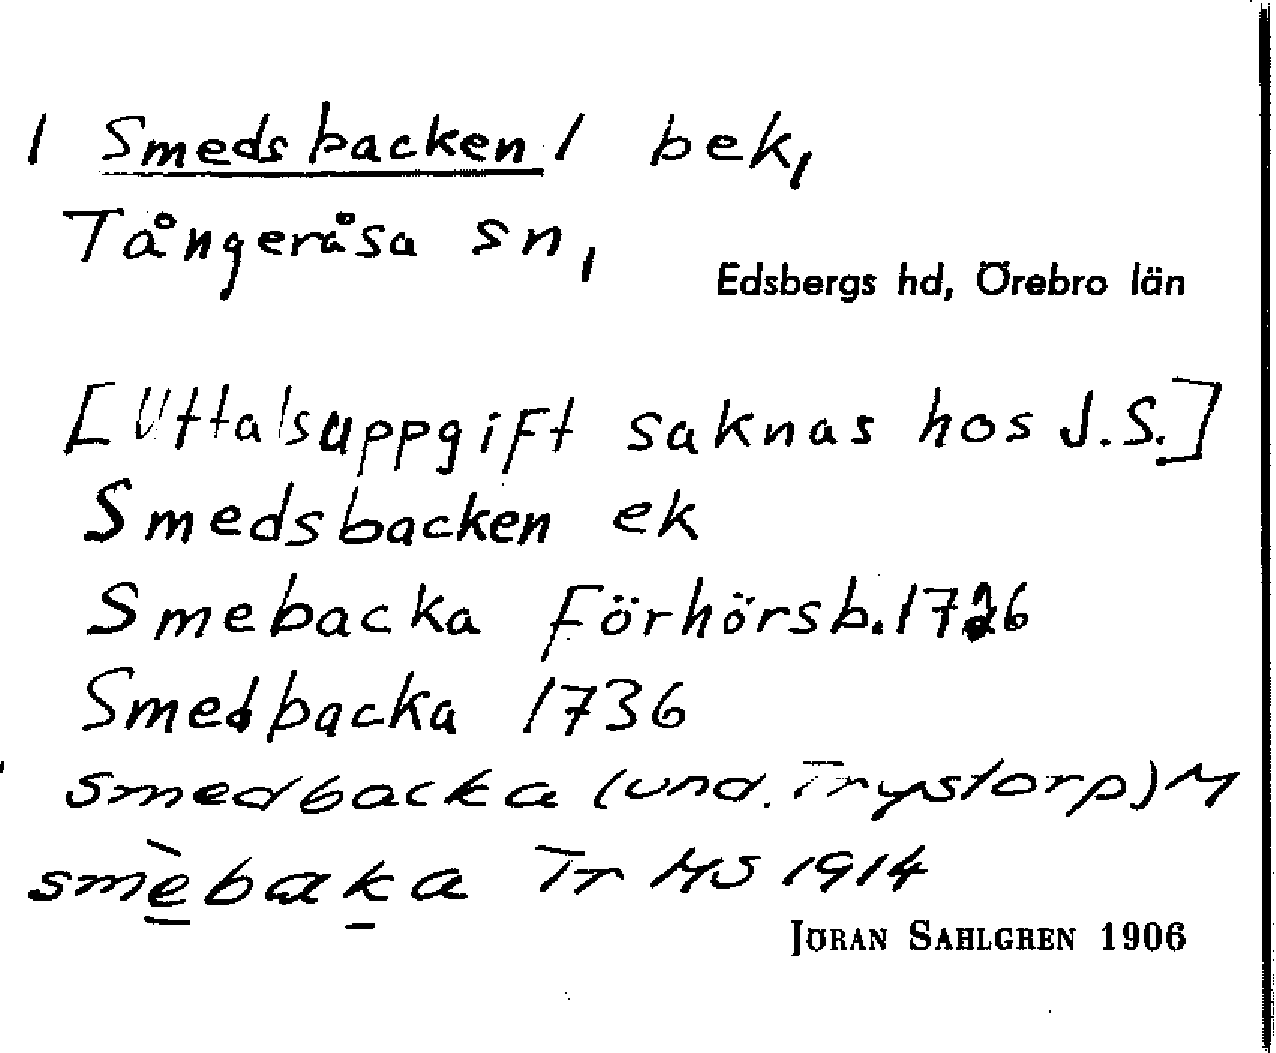 / Smedsbacken / bek,
Tångeråsa sn,
Edsbergs hd, Örebro län
[Uttalsuppgift saknas hos J.S.]
Smedsbacken ek
Smebacka Förhörsb. 1726
Smedbacka 1736
smedbacka (und. Trystorp) M
smèbaka Tr MS 1914
JÖRAN SAHLGREN 1906